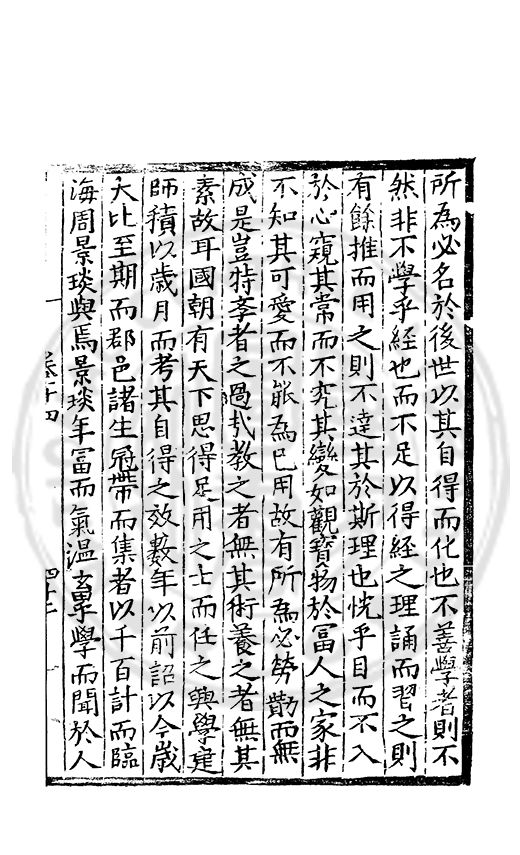 所為必名於後世以其自得而化也不善學者則不
然非不學乎經也而不足以得經之理誦而習之則
有餘推而用之則不達其於斯理也恍乎目而不入
於心窺其常而不究其變如觀寶物於富人之家非
不知其可愛而不能為已用故有所為必勞勩而無
成是豈特學者之過哉教之者無其術養之者無其
素故耳國朝有天下思得足用之士而任之興學建
師積以歲月而考其自得之效數年以前詔以今歲
大比至期而郡邑諸生冠帶而集者以千百計而臨
海周景琰與焉景琰年富而氣溫玄學而聞於人
卷十四
四十二